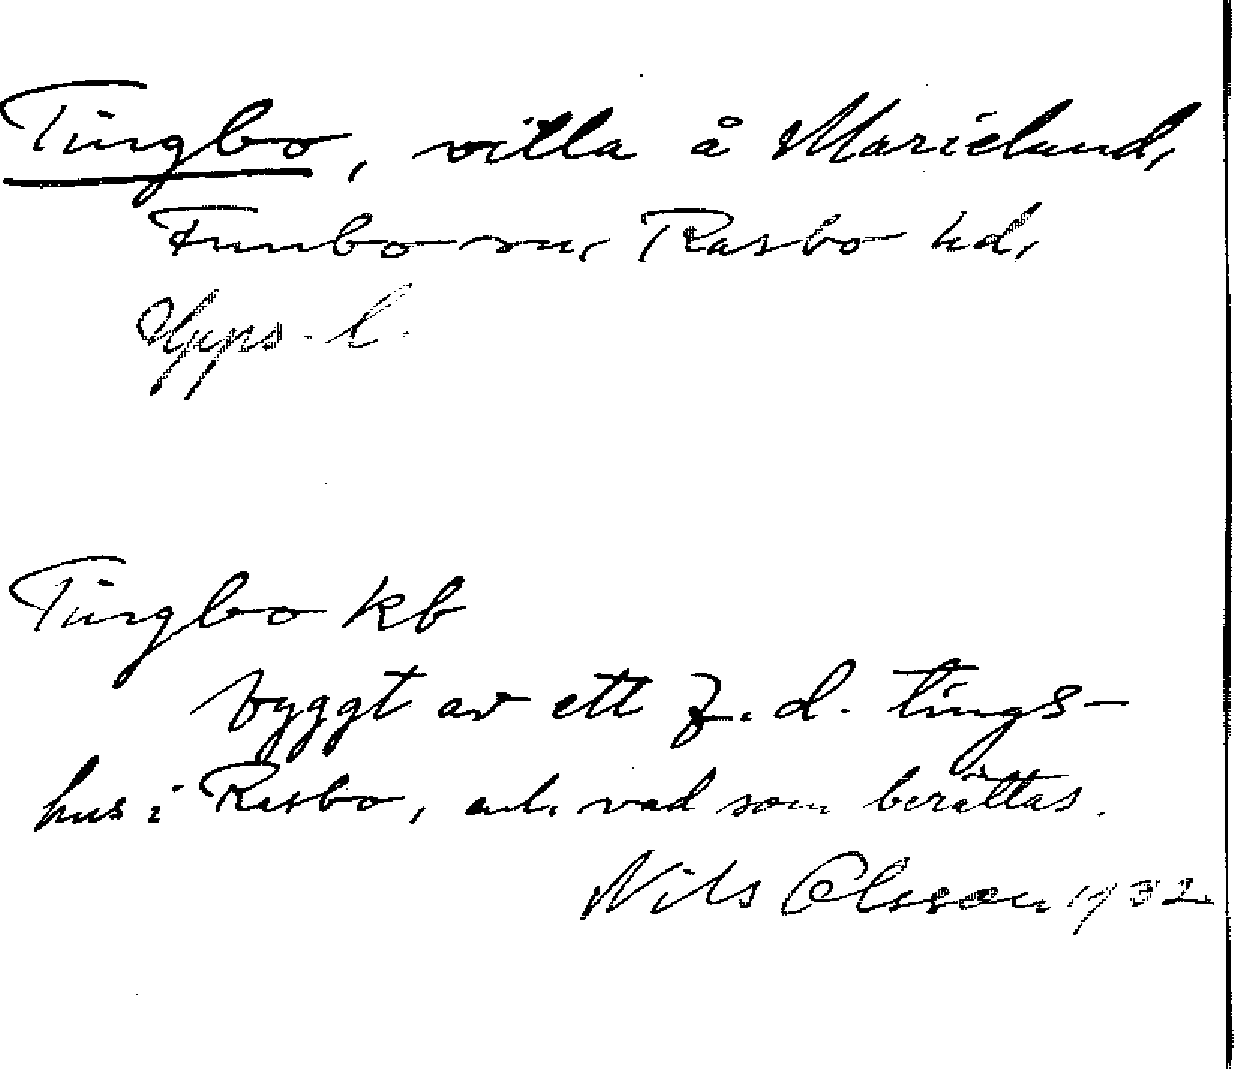 Tingbo, villa å Marielund,
Funbo sn, Rasbo hd,
Upps. l.
Tingbo kb
byggt av ett f.d. tings-
hus i Rasbo, enl. vad som berättas.
Nils Olsson 1932